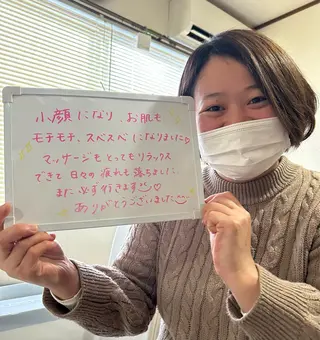 小顔になり、お肌も
モチモチ、スベスベになりました♡
マッサージもとってもリラックス
できて日々の疲れも落ちました
また必ず行きます♡
ありがとうございました